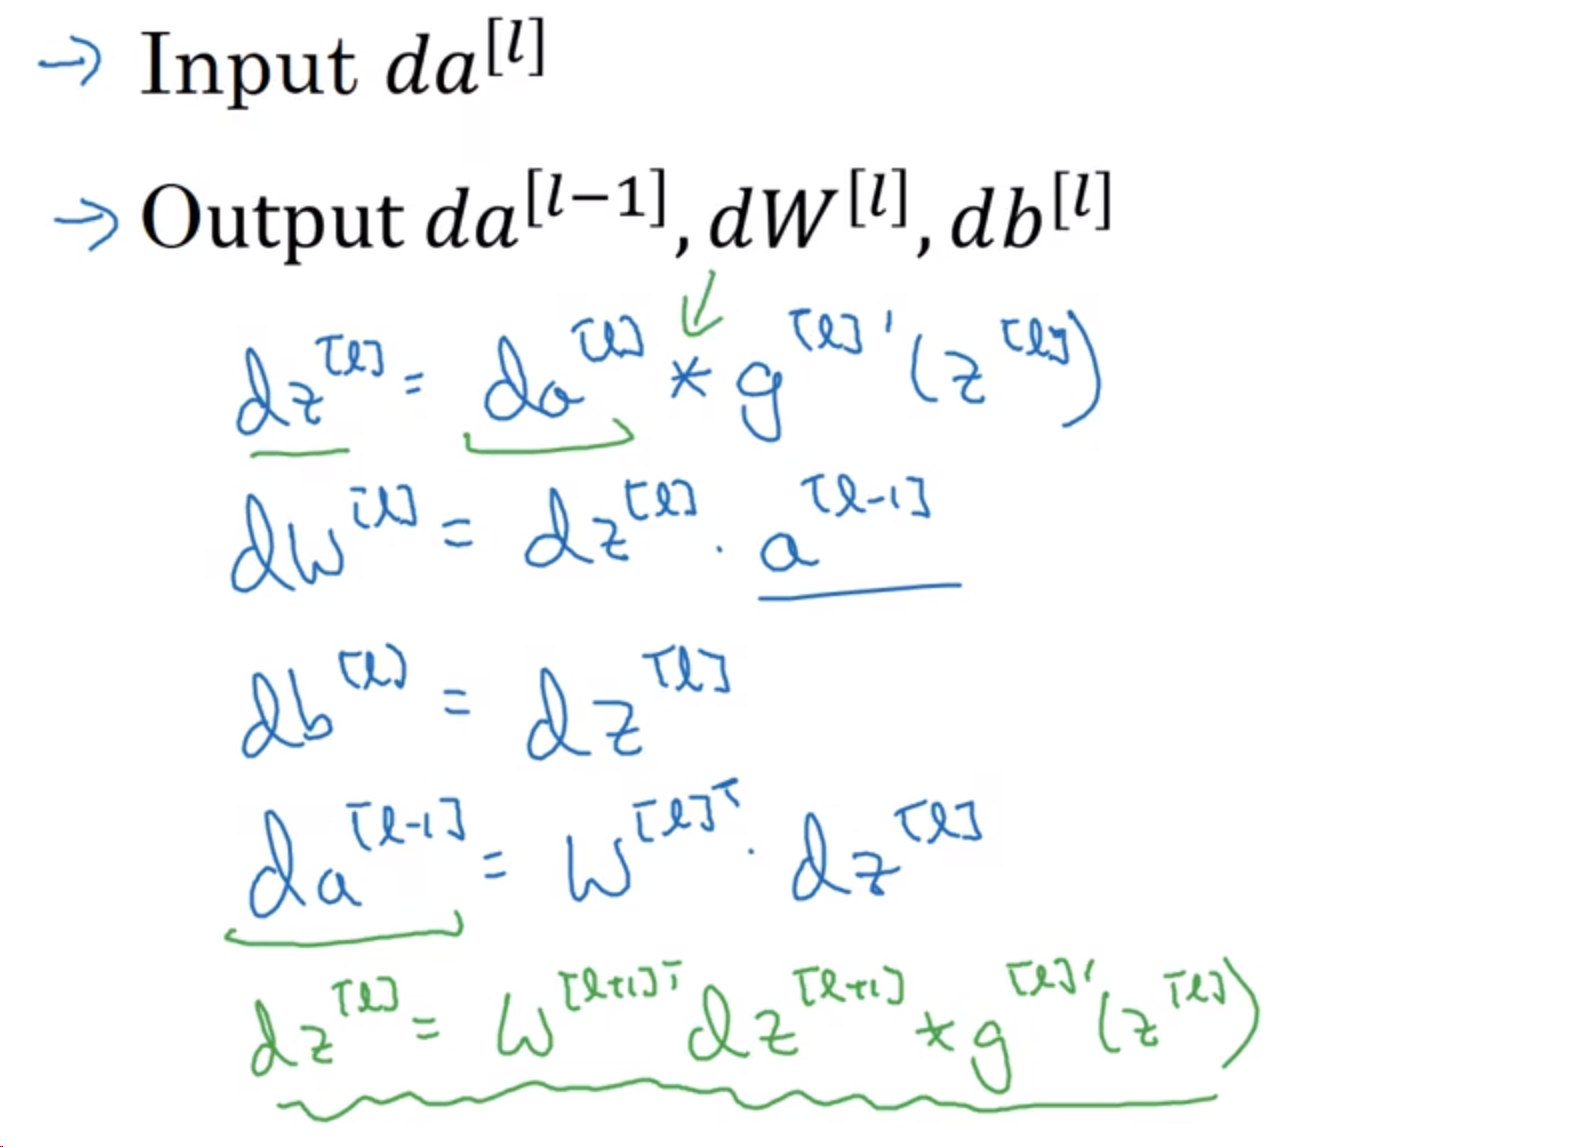 → Input da^[l]
→ Output da^[l−1], dW^[l], db^[l]
dz^[l] = da^[l] * g^[l]'(z^[l])
dw^[l] = dz^[l] · a^[l-1]
db^[l] = dz^[l]
da^[l-1] = w^[l]T · dz^[l]
dz^[l] = w^[l+1]T dz^[l+1] * g^[l]'(z^[l])